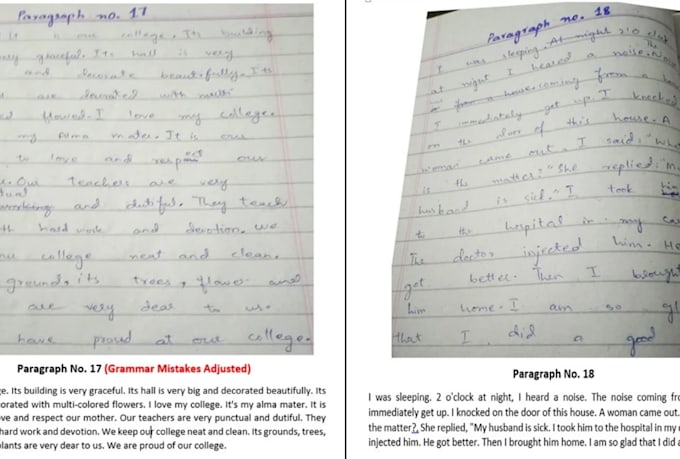 Paragraph no. 17
It is our college. Its building
graceful. Its hall is very
and decorate beautifully. Its
are decorated with multi
flowed. I love my college.
my Alma mater. It is our
to love and respect our
Our teachers are very
working and dutiful. They teach
hard work and devotion. we
our college neat and clean.
ground, its trees, flowe and
are very dear to us.
have proud at our college.
Paragraph No. 17 (Grammar Mistakes Adjusted)
ge. Its building is very graceful. Its hall is very big and decorated beautifully. Its
orated with multi-colored flowers. I love my college. It's my alma mater. It is
ve and respect our mother. Our teachers are very punctual and dutiful. They
hard work and devotion. We keep our college neat and clean. Its grounds, trees,
plants are very dear to us. We are proud of our college.
Paragraph no. 18
I was sleeping. At night 2'o clok
at night I heared a noise. The
from a house coming from a
I immediately get up. I knocked
on the door of this house. A
woman came out. I said: "Wha
is the matter?" She replied: "M
husband is sick." I took him
to the hospital in my ca
The doctor injected him. He
got better. Then I brought
him home. I am so gl
that I did a good
Paragraph No. 18
I was sleeping. 2 o'clock at night, I heard a noise. The noise coming fro
immediately get up. I knocked on the door of this house. A woman came out.
the matter?, She replied, "My husband is sick. I took him to the hospital in my
injected him. He got better. Then I brought him home. I am so glad that I did a